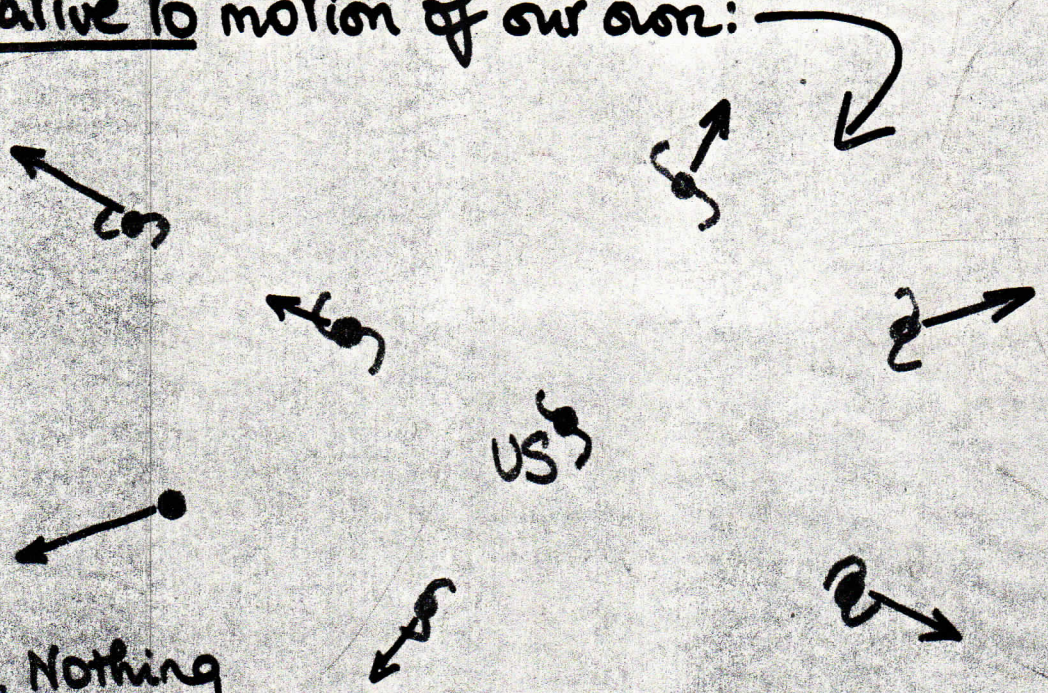 ative to motion of our own:
US
Nothing